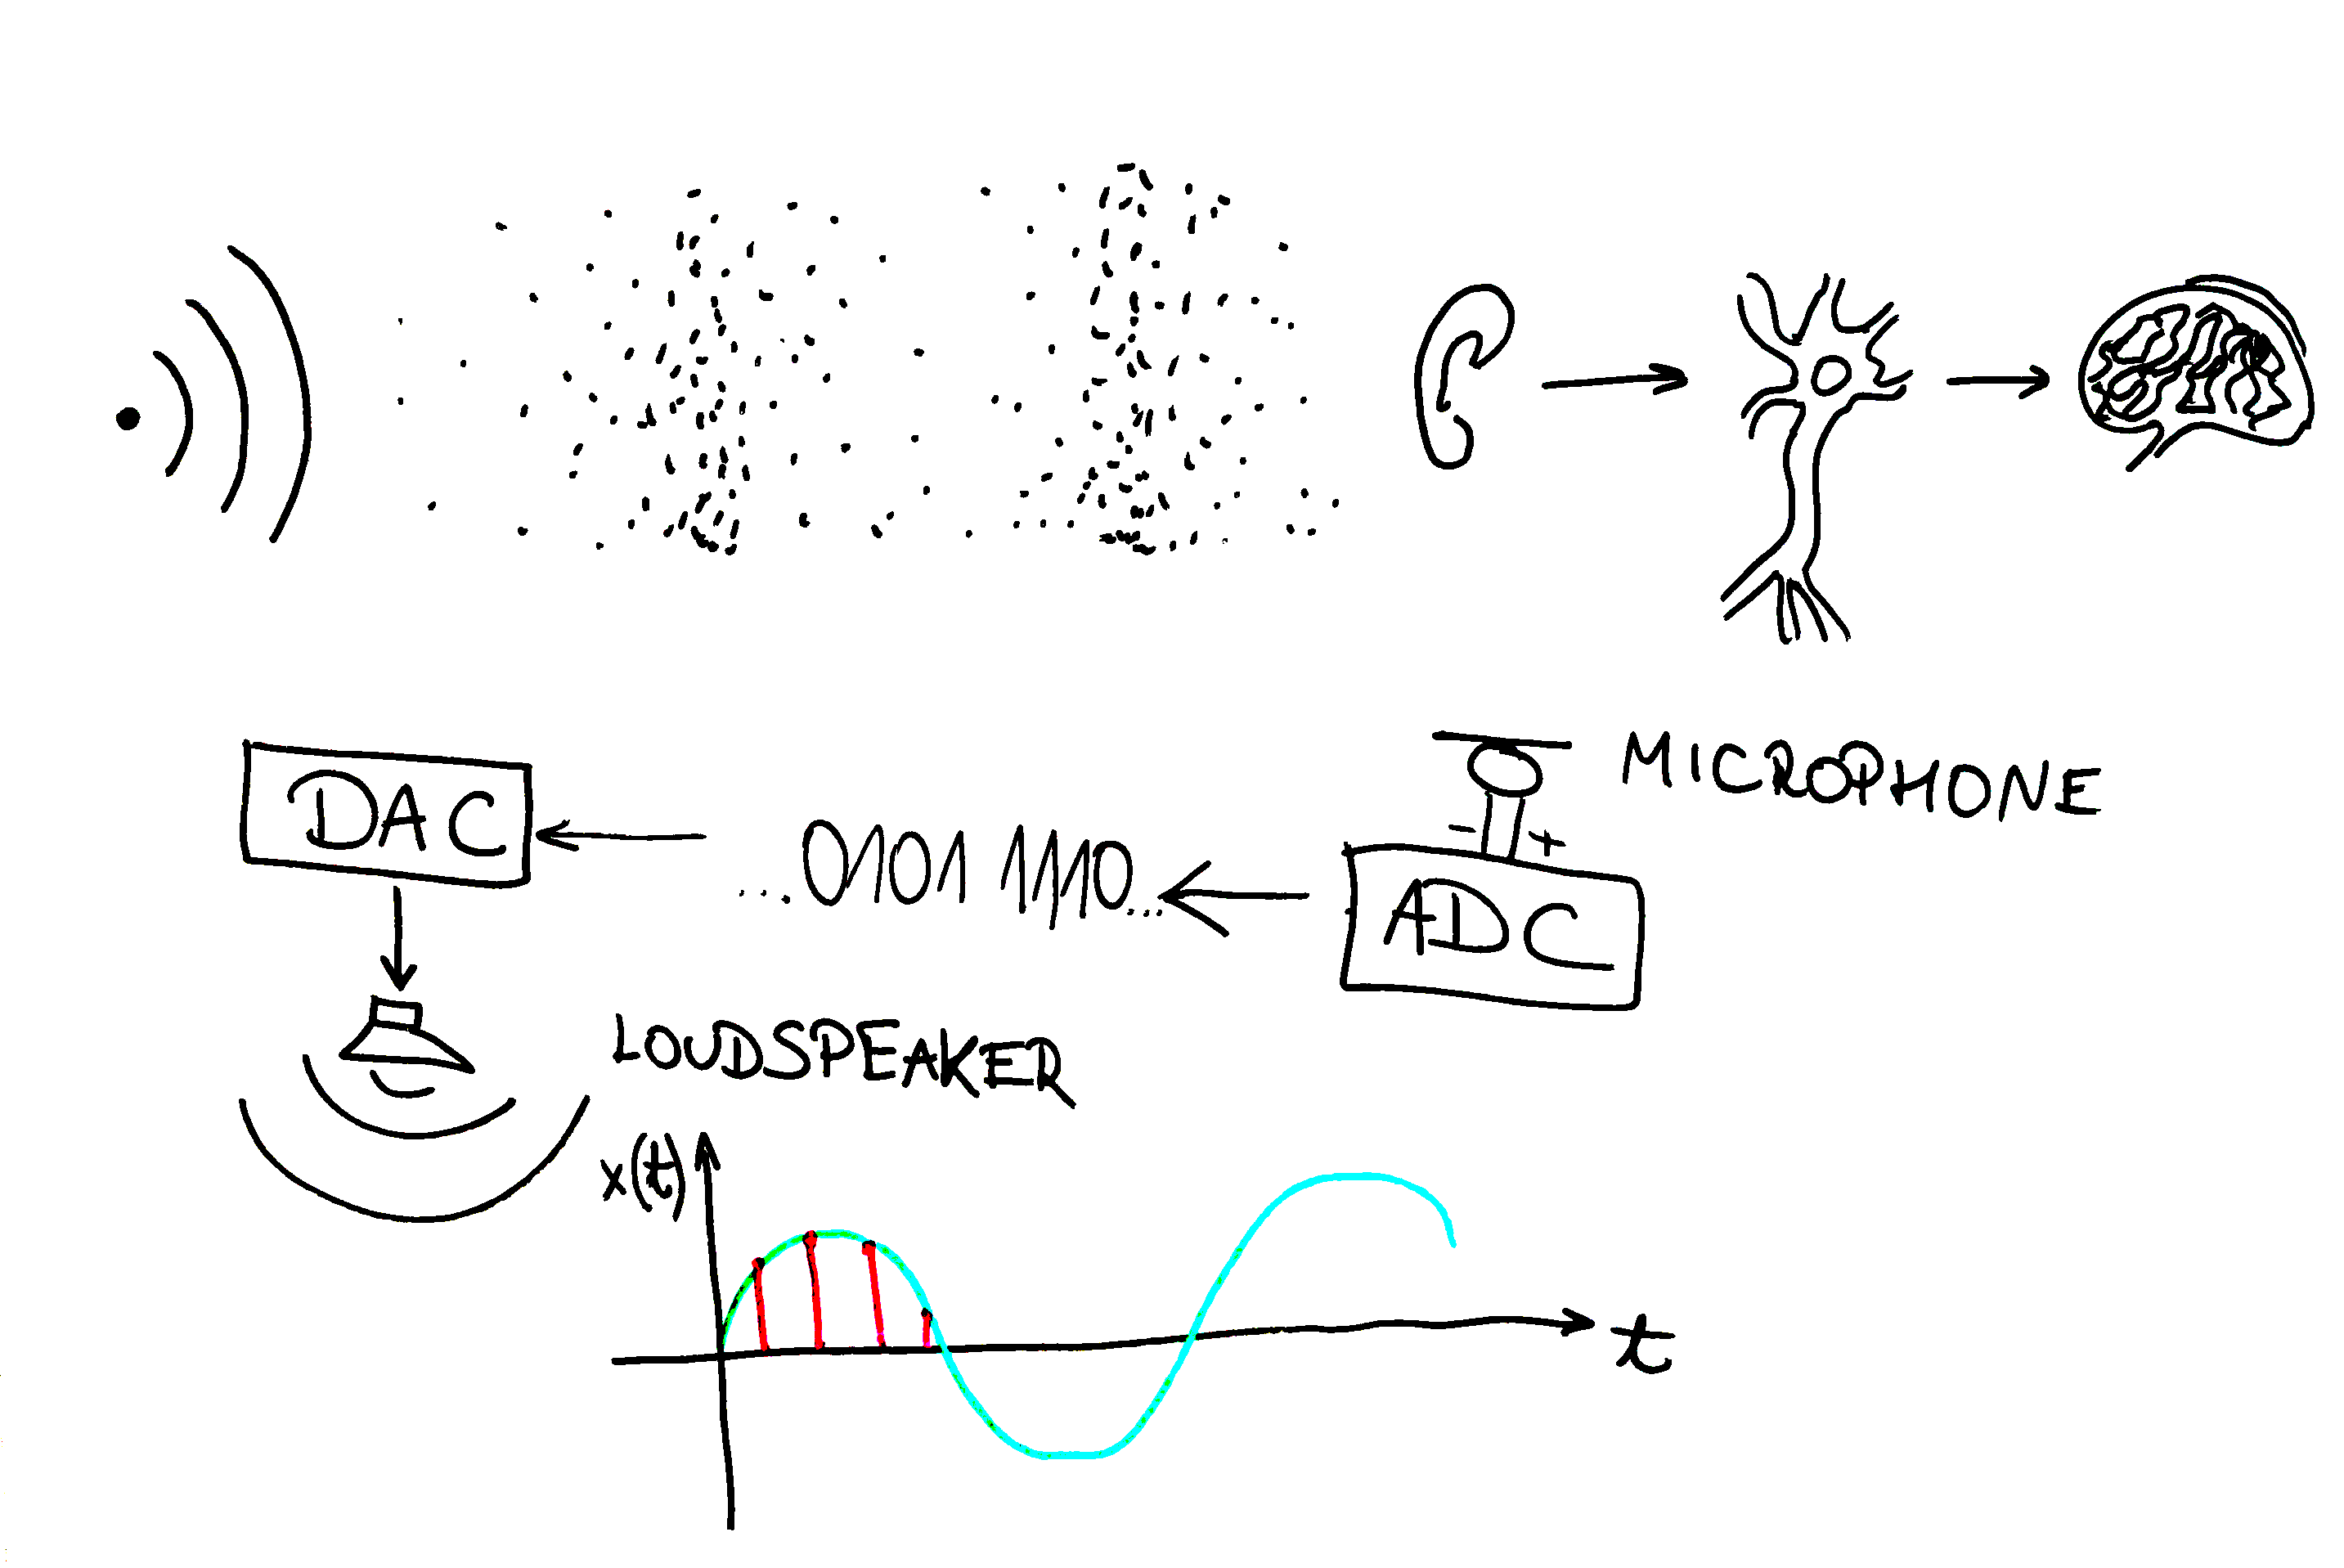 MICROPHONE
DAC
- +
...0101 1110...
ADC
LOUDSPEAKER
x(t)
t